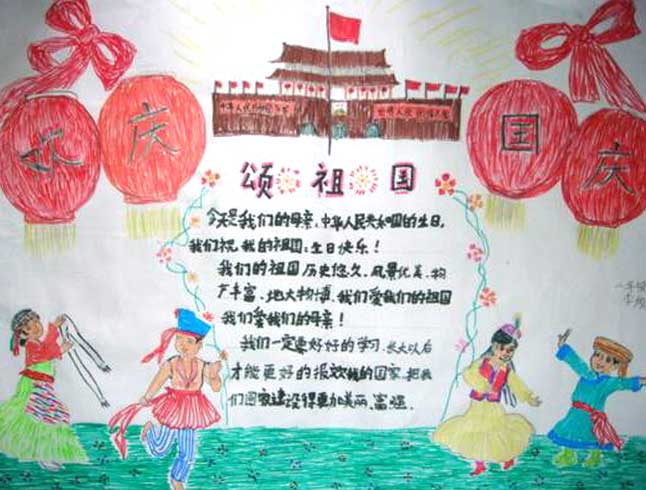 欢 庆 国 庆
颂 祖 国
今天是我们的母亲:中华人民共和国的生日,
我们祝 我的祖国:生日快乐!
我们的祖国历史悠久、风景优美、物
产丰富、地大物博、我们爱我们的祖国
我们爱我们的母亲!
我们一定要好好的学习、长大以后
才能更好的报效我的国家、把我
们国家建设得更加美丽、富强.
二年级